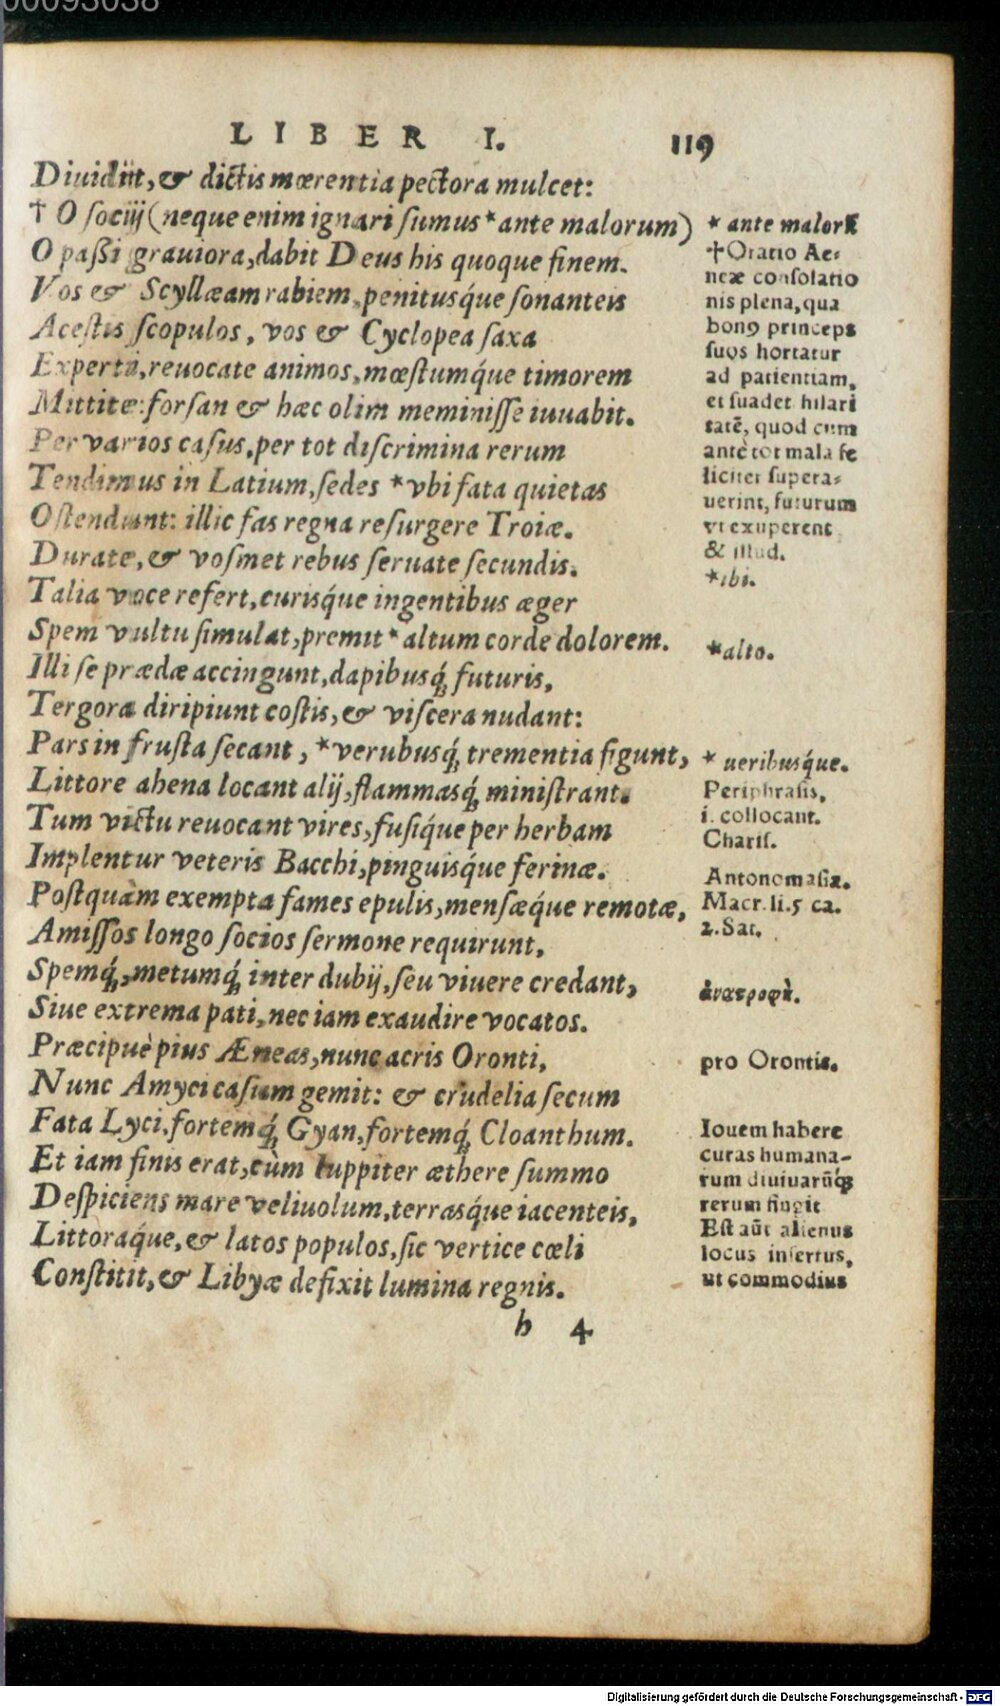 00093038
LIBER I. 119
Diuidūt, & dictis mœrentia pectora mulcet:
† O sociij (neque enim ignari sumus * ante malorum)
O paßi grauiora, dabit Deus his quoque finem.
Vos & Scyllæam rabiem, penitusq́ue sonanteis
Acestis scopulos, vos & Cyclopea saxa
Experti, reuocate animos, mœstumq́ue timorem
Mittite: forsan & hæc olim meminisse iuuabit.
Per varios casus, per tot discrimina rerum
Tendimus in Latium, sedes * vbi fata quietas
Ostendunt: illic fas regna resurgere Troiæ.
Durate, & vosmet rebus seruate secundis.
Talia voce refert, curisq́ue ingentibus æger
Spem vultu simulat, premit * altum corde dolorem.
Illi se prædæ accingunt, dapibusq́; futuris,
Tergora diripiunt costis, & viscera nudant:
Pars in frusta secant, * verubusq́; trementia figunt,
Littore ahena locant alij, flammasq́; ministrant.
Tum victu reuocant vires, fusiq́ue per herbam
Implentur veteris Bacchi, pinguisq́ue ferinæ.
Postquàm exempta fames epulis, mensæq́ue remotæ,
Amissos longo socios sermone requirunt,
Spemq́;, metumq́; inter dubij, seu viuere credant,
Siue extrema pati, nec iam exaudire vocatos.
Præcipuè pius Æneas, nunc acris Oronti,
Nunc Amyci casum gemit: & crudelia secum
Fata Lyci, fortemq́; Gyan, fortemq́; Cloanthum.
Et iam finis erat, cùm Iuppiter æthere summo
Despiciens mare veliuolum, terrasq́ue iacenteis,
Littoraq́ue, & latos populos, sic vertice cœli
Constitit, & Libyæ defixit lumina regnis.
h 4
* ante malorū
†Oratio Ae-
neæ consolatio
nis plena, qua
bonꝰ princeps
suos hortatur
ad patientiam,
et suadet hilari
tatē, quod cum
antè tot mala fe
liciter supera-
uerint, futurum
vt exuperent
& illud.
*ibi.
*alto.
* ueribusq́ue.
Periphrasis,
i. collocant.
Charis.
Antonomasia.
Macr. li.5 ca.
2. Sat.
ἀναστροφὴ.
pro Orontis.
Iouem habere
curas humana-
rum diuinarūq́;
rerum fingit
Est aūt alienus
locus insertus,
ut commodius
Digitalisierung gefördert durch die Deutsche Forschungsgemeinschaft - DFG